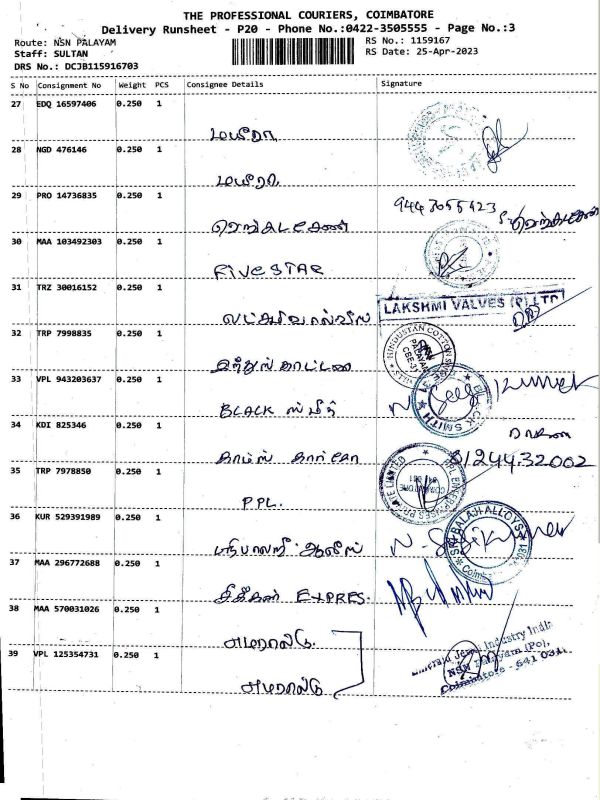 THE PROFESSIONAL COURIERS, COIMBATORE
Delivery Runsheet - P20 - Phone No.:0422-3505555 - Page No.:3
Route: NSN PALAYAM
RS No.: 1159167
Staff: SULTAN
RS Date: 25-Apr-2023
DRS No.: DCJB115916703
S No Consignment No Weight PCS Consignee Details Signature
27 EDQ 16597406 0.250 1
மயூரா
28 NGD 476146 0.250 1
மயூரா
29 PRO 14736835 0.250 1
9447655423
வெங்கடேசன்
30 MAA 103492303 0.250 1
FIVE STAR
31 TRZ 30016152 0.250 1
LAKSHMI VALVES (P) LTD
லட்சுமி வால்வ்ஸ்
32 TRP 7998835 0.250 1
HINDUSTAN COTTON
33 VPL 943203637 0.250 1
BLACK ஸ்மித்
34 KDI 825346 0.250 1
8124432002
35 TRP 7978850 0.250 1
PPL.
36 KUR 529391989 0.250 1
SRI BALAJI ALLOYS
37 MAA 296772688 0.250 1
EXPRES.
38 MAA 570031026 0.250 1
எமரால்டு.
39 VPL 125354731 0.250 1
Emerald Jewel Industry India
NSN Palayam (Po),
Coimbatore - 641 031.
எமரால்டு